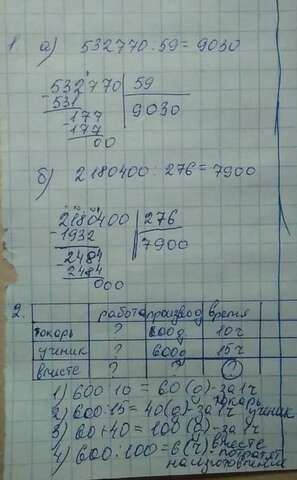 1 а) 532770:59=9030
532770 59
531 9030
177
177
00
б) 2180400:276=7900
2180400 276
1932 7900
2484
2484
000
2. работа производ время
токарь ? 600д 10ч
ученик ? 600д 15ч
вместе ? ? ?
1) 600:10=60(д)-за 1ч токарь
2) 600:15=40(д)-за 1ч ученик
3) 60+40=100(д)-за 1ч вместе
4) 600:100=6(ч) потратят
на изготовление